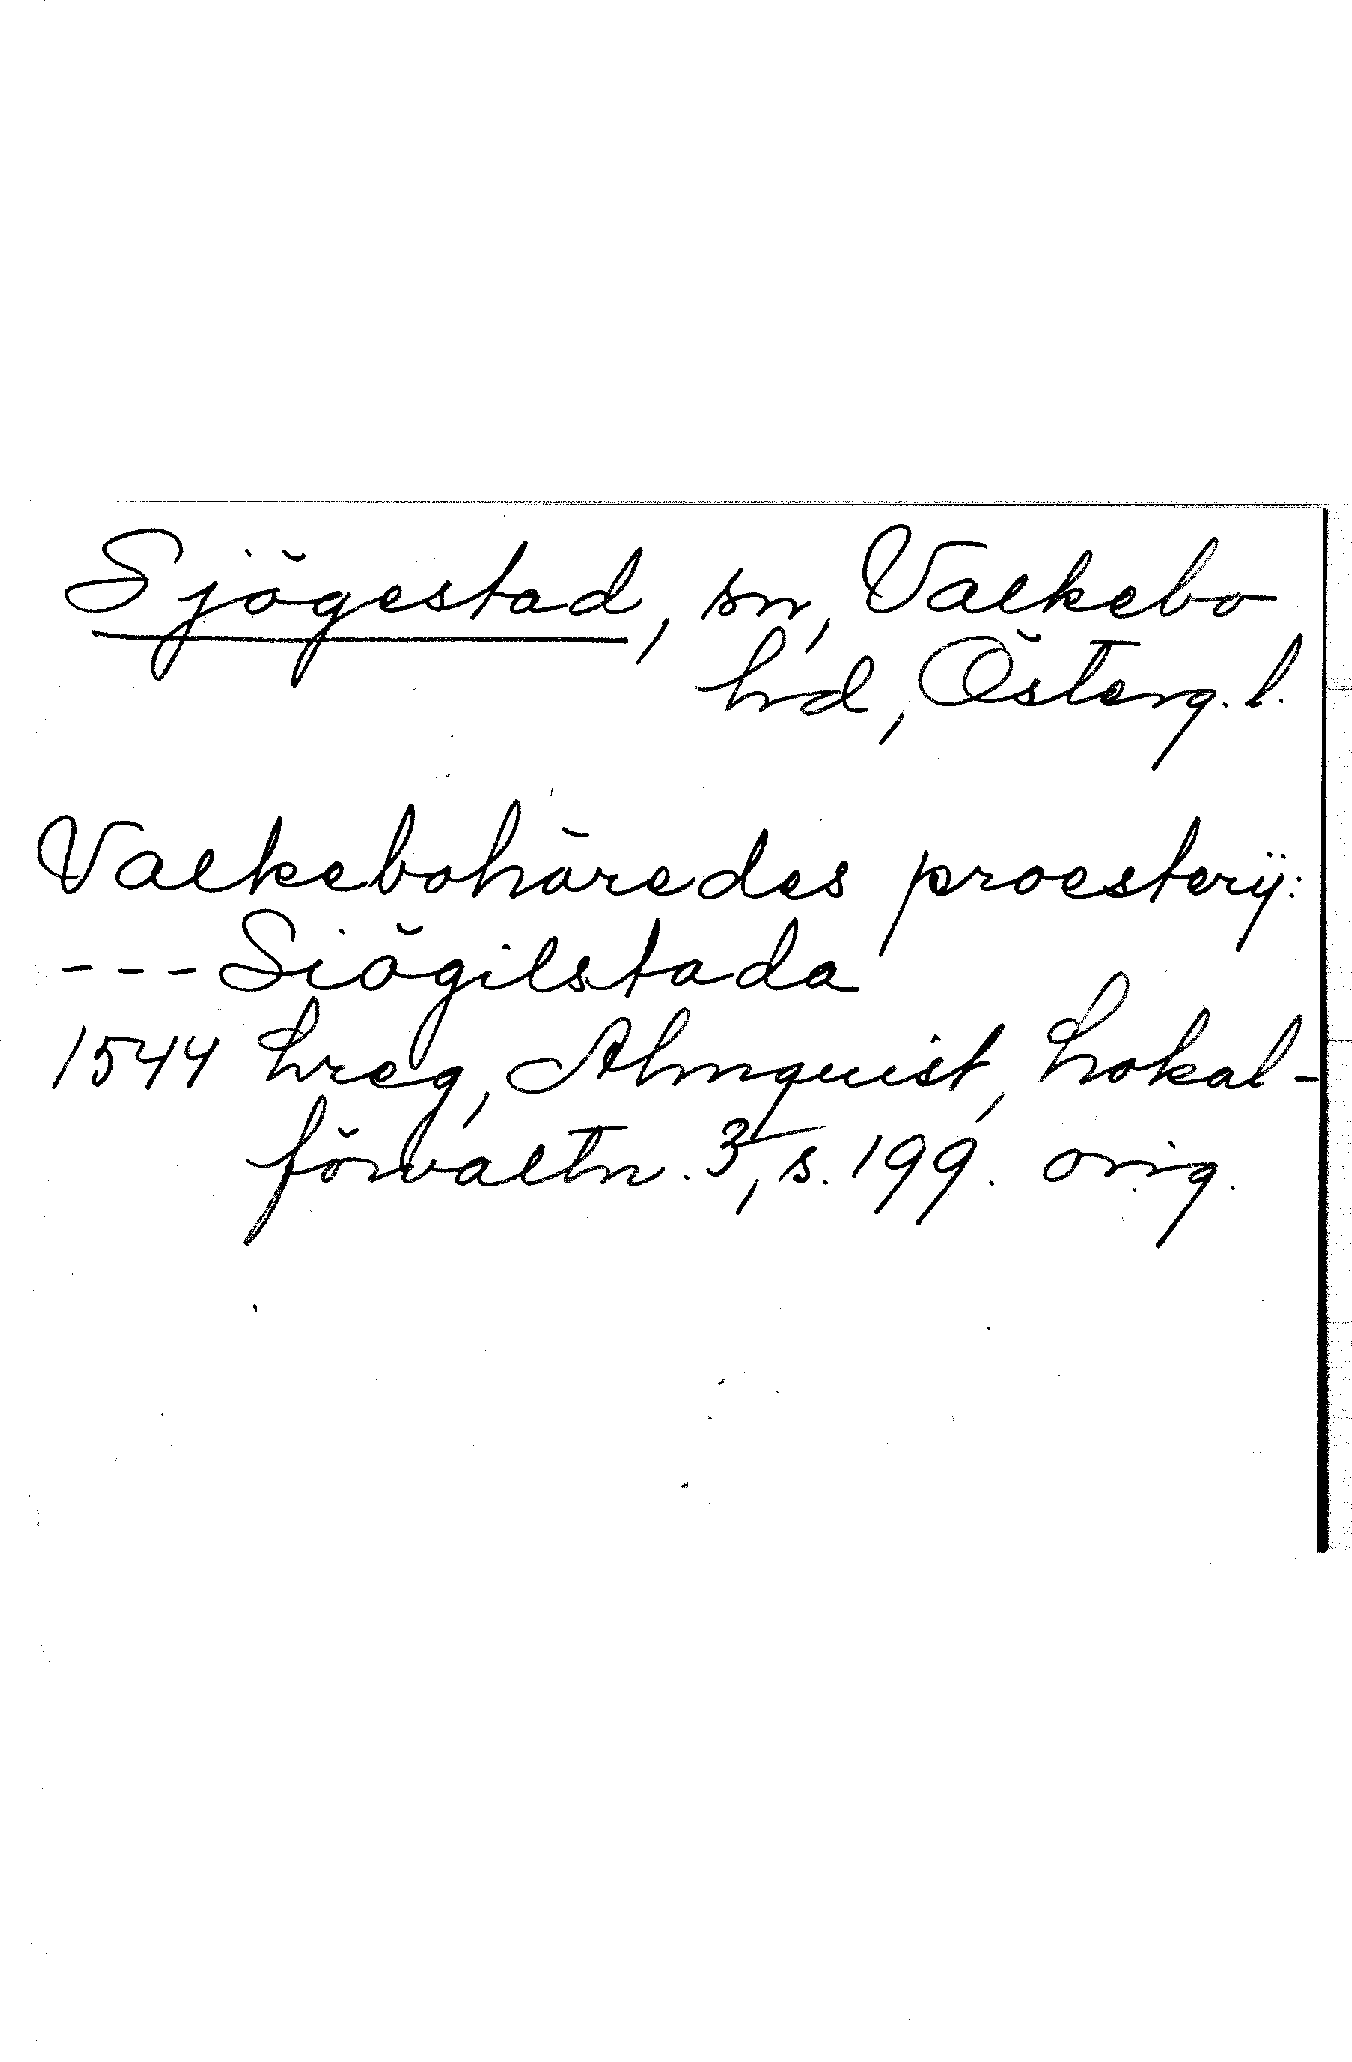 Sjögestad, sn, Valkebo
hd, Österg. l.
Valkebohäredes proesterij:
---Siögilstada
1544 hreg, Almquist, Lokal-
förvaltn. 3, s. 199. orig.